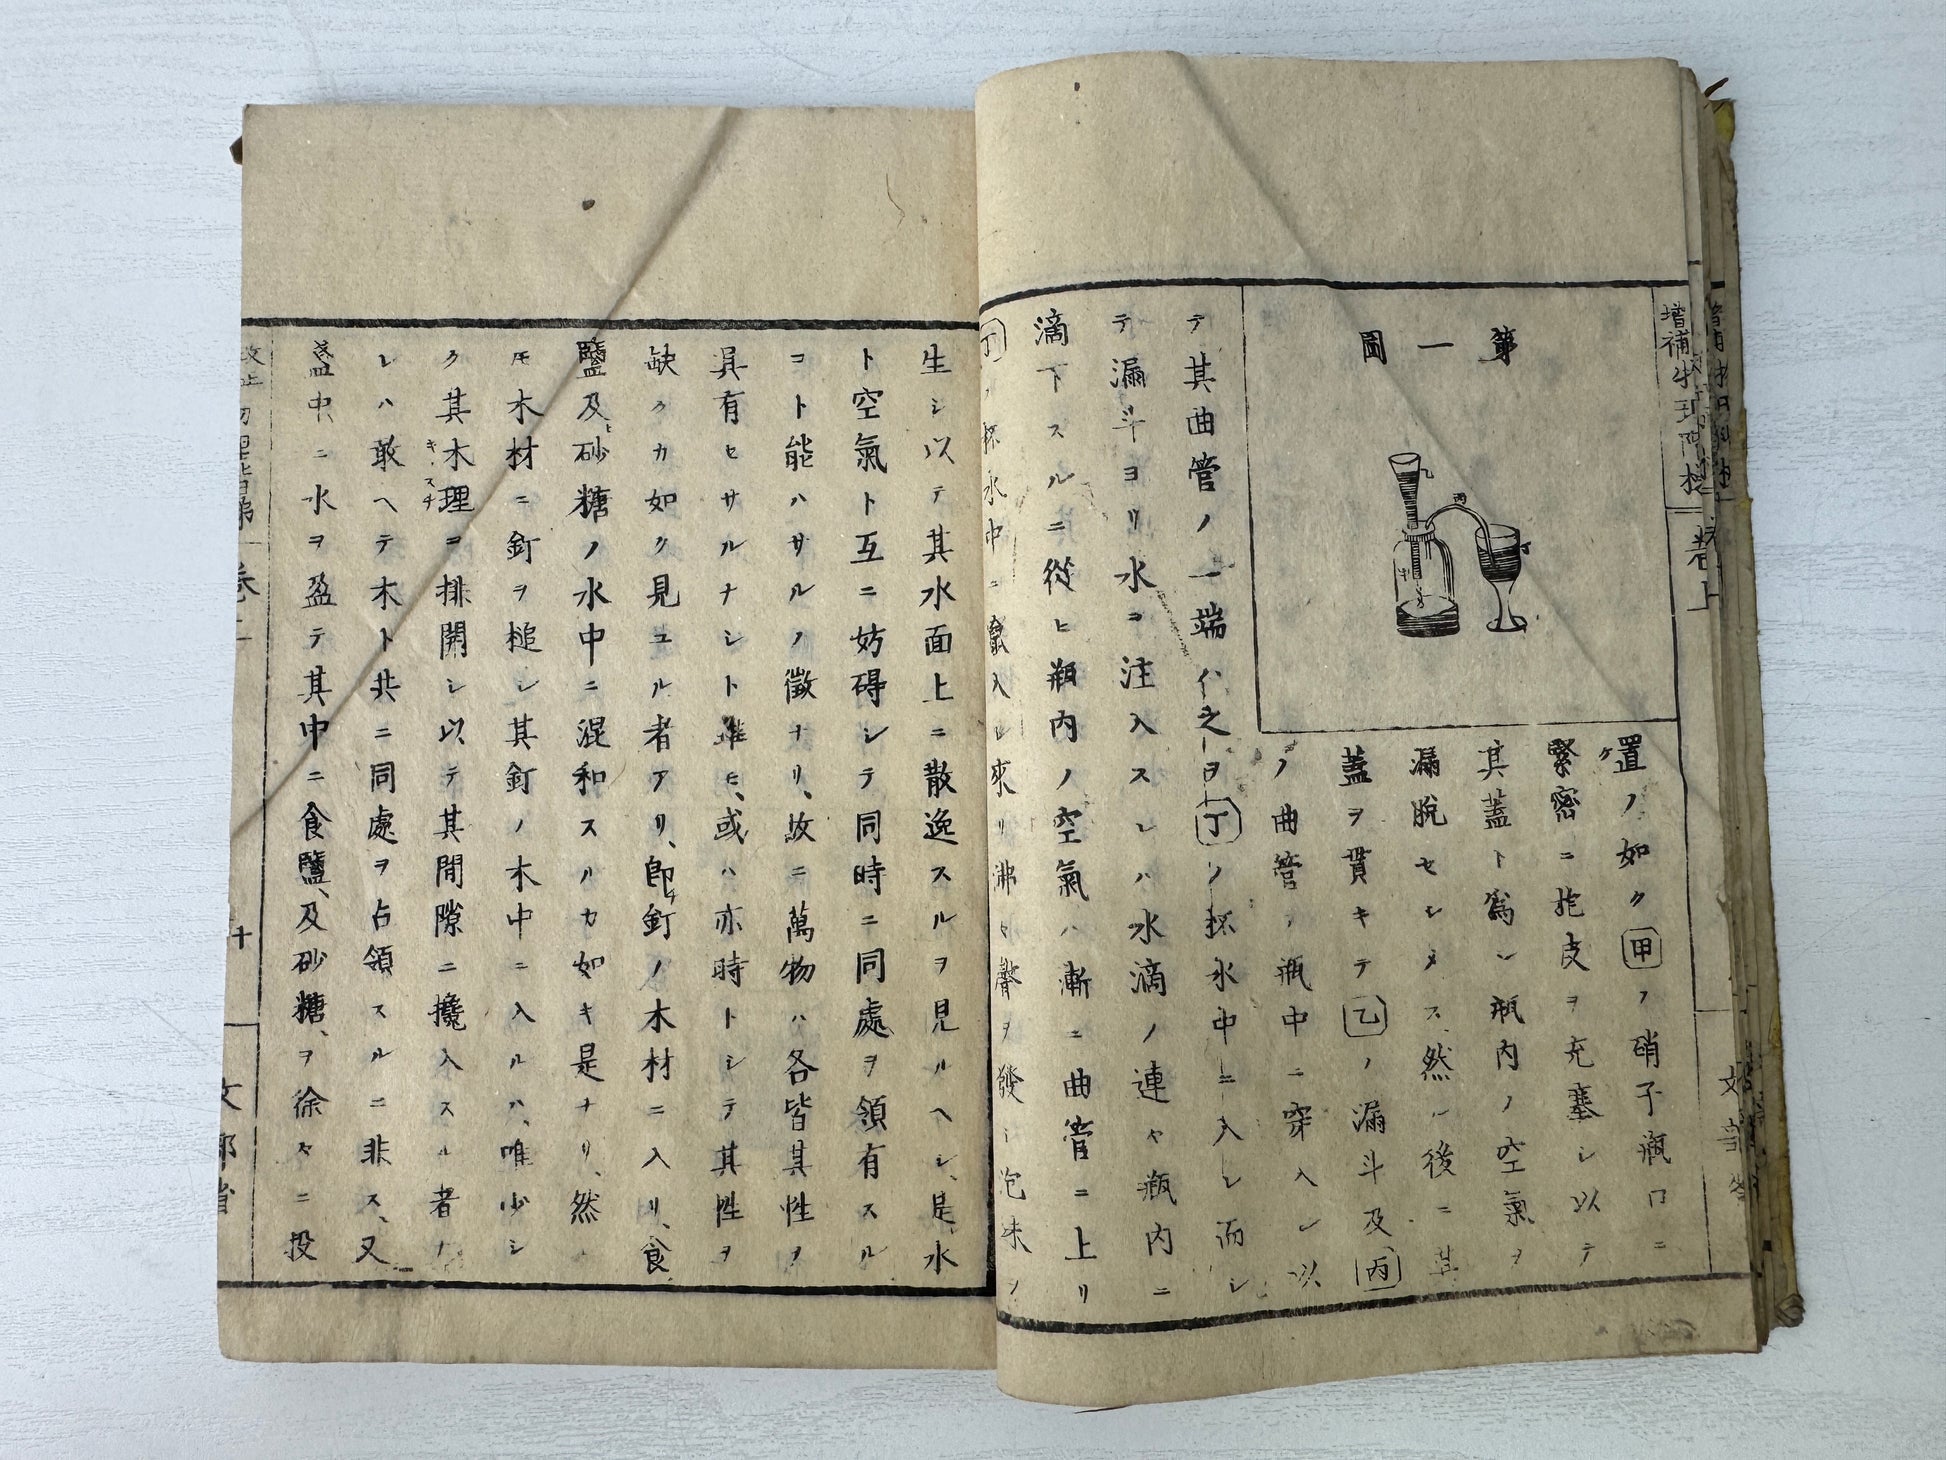 第一圖
丙
置ノ如ク甲ノ硝子瓶口ニ
緊密ニ抱皮ヲ充塞シ以テ
其蓋ト爲シ瓶内ノ空氣ヲ
漏脫セシメス、然ル後ニ其
蓋ヲ貫キテ乙ノ漏斗及丙
ノ曲管ノ瓶中ニ穿入シ以
テ其曲管ノ一端ハ之ヲ丁ノ杯水中ニ入レ而シ
テ漏斗ヨリ水ヲ注入スレハ水滴ノ連々瓶内ニ
滴下スルニ從ヒ瓶内ノ空氣ハ漸ニ曲管ニ上リ
丁ノ杯水中ニ竄入シ來リ沸々聲ヲ發シ泡沫ヲ
生シ以テ其水面上ニ散逸スルヲ見ルヘシ、是、水
ト空氣ト互ニ妨碍シテ同時ニ同處ヲ領有スル
コト能ハサルノ徵ナリ、故ニ萬物ハ各皆其性ヲ
具有セサルナシト雖ヒ、或ハ亦時トシテ其性ヲ
缺クカ如ク見ユル者アリ、卽チ釘ノ木材ニ入リ、食
鹽及ヒ砂糖ノ水中ニ混和スルカ如キ是ナリ、然
モ木材ニ釘ヲ槌シ其釘ノ木中ニ入ルハ、唯少シ
ク其木理ヲ排開シ以テ其間隙ニ攙入スル者ナ
キノスヂ
レハ敢ヘテ木ト共ニ同處ヲ占領スルニ非ス、又
盞中ニ水ヲ盈テ其中ニ食鹽、及砂糖、ヲ徐々ニ投
增補物理階梯 卷上
文部省
十
文部省